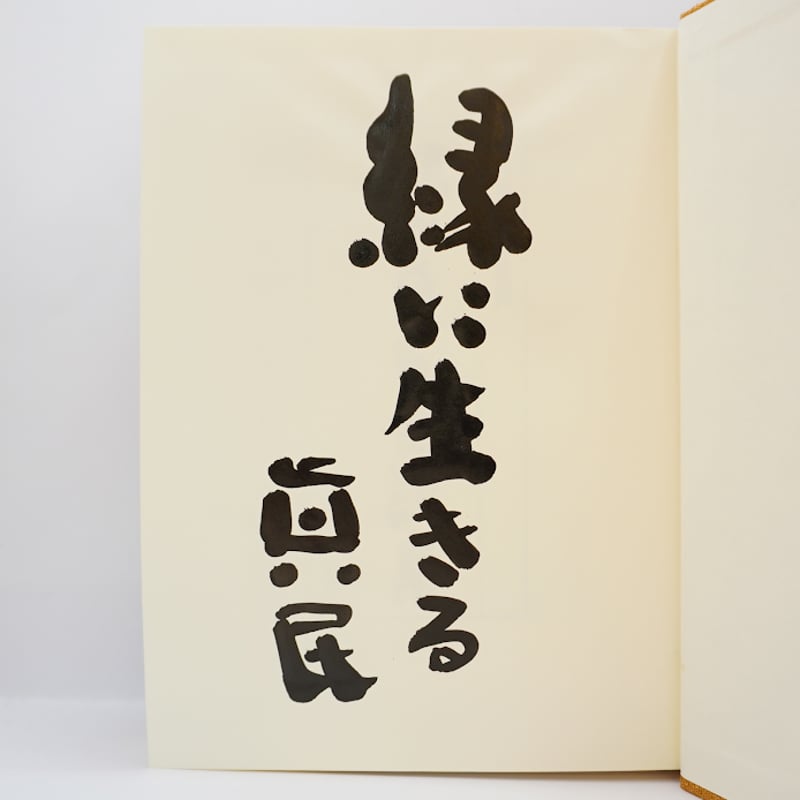 縁に生きる
眞民